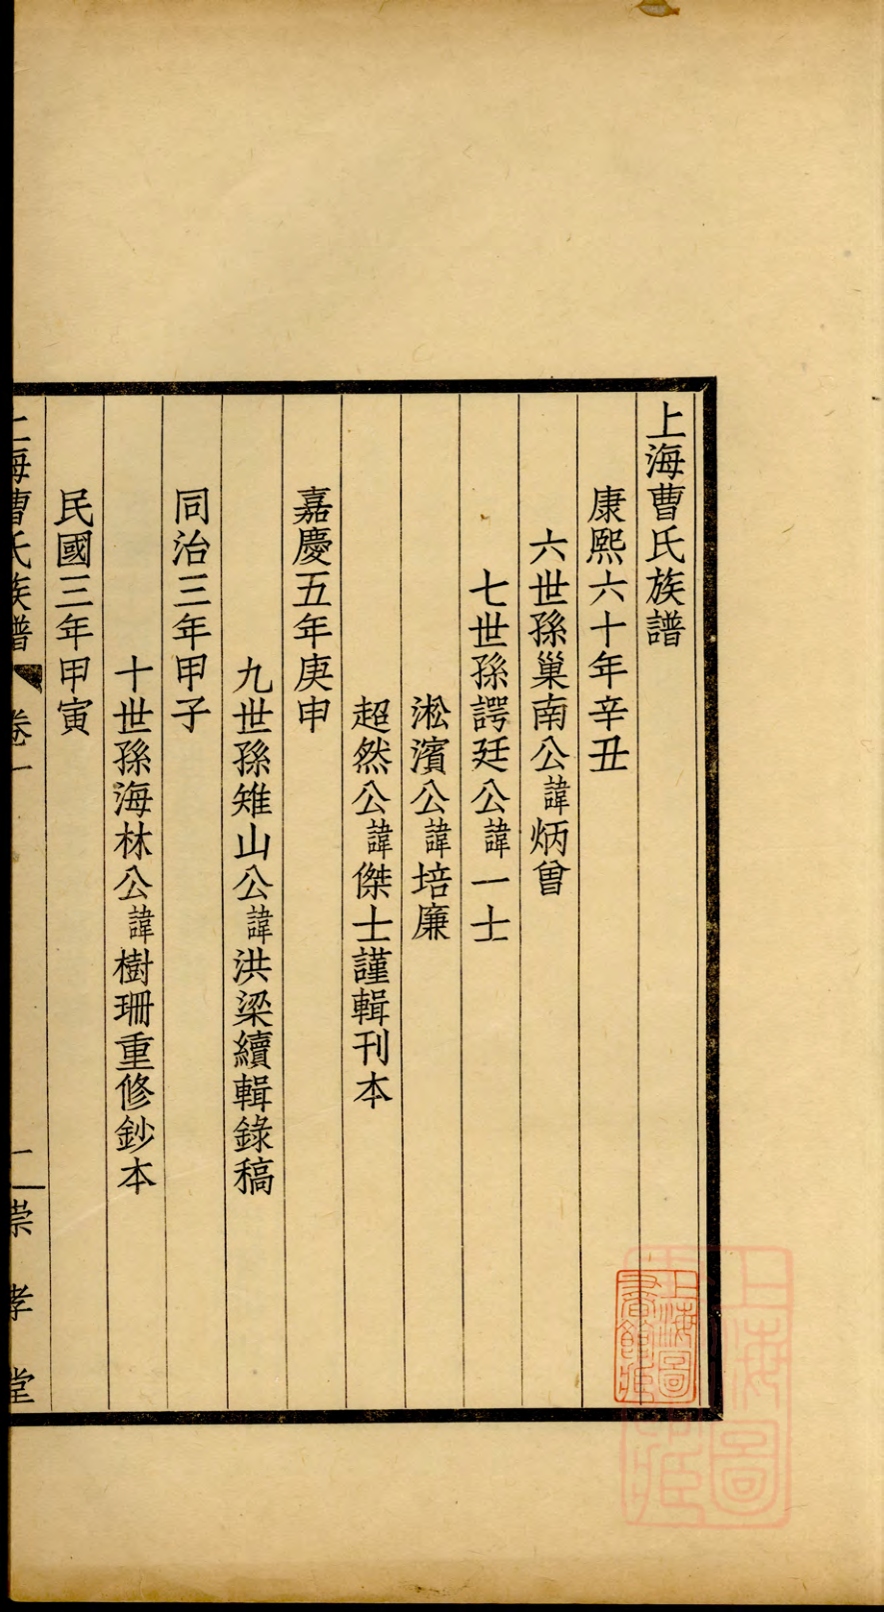 上海曹氏族譜
康熙六十年辛丑
六世孫巢南公諱炳曾
七世孫諤廷公諱一士
淞濱公諱培廉
超然公諱傑士謹輯刊本
嘉慶五年庚申
九世孫雉山公諱洪梁續輯錄稿
同治三年甲子
十世孫海林公諱樹珊重修鈔本
民國三年甲寅
上海曹氏族譜 卷一 二 崇孝堂
上海圖
書館藏